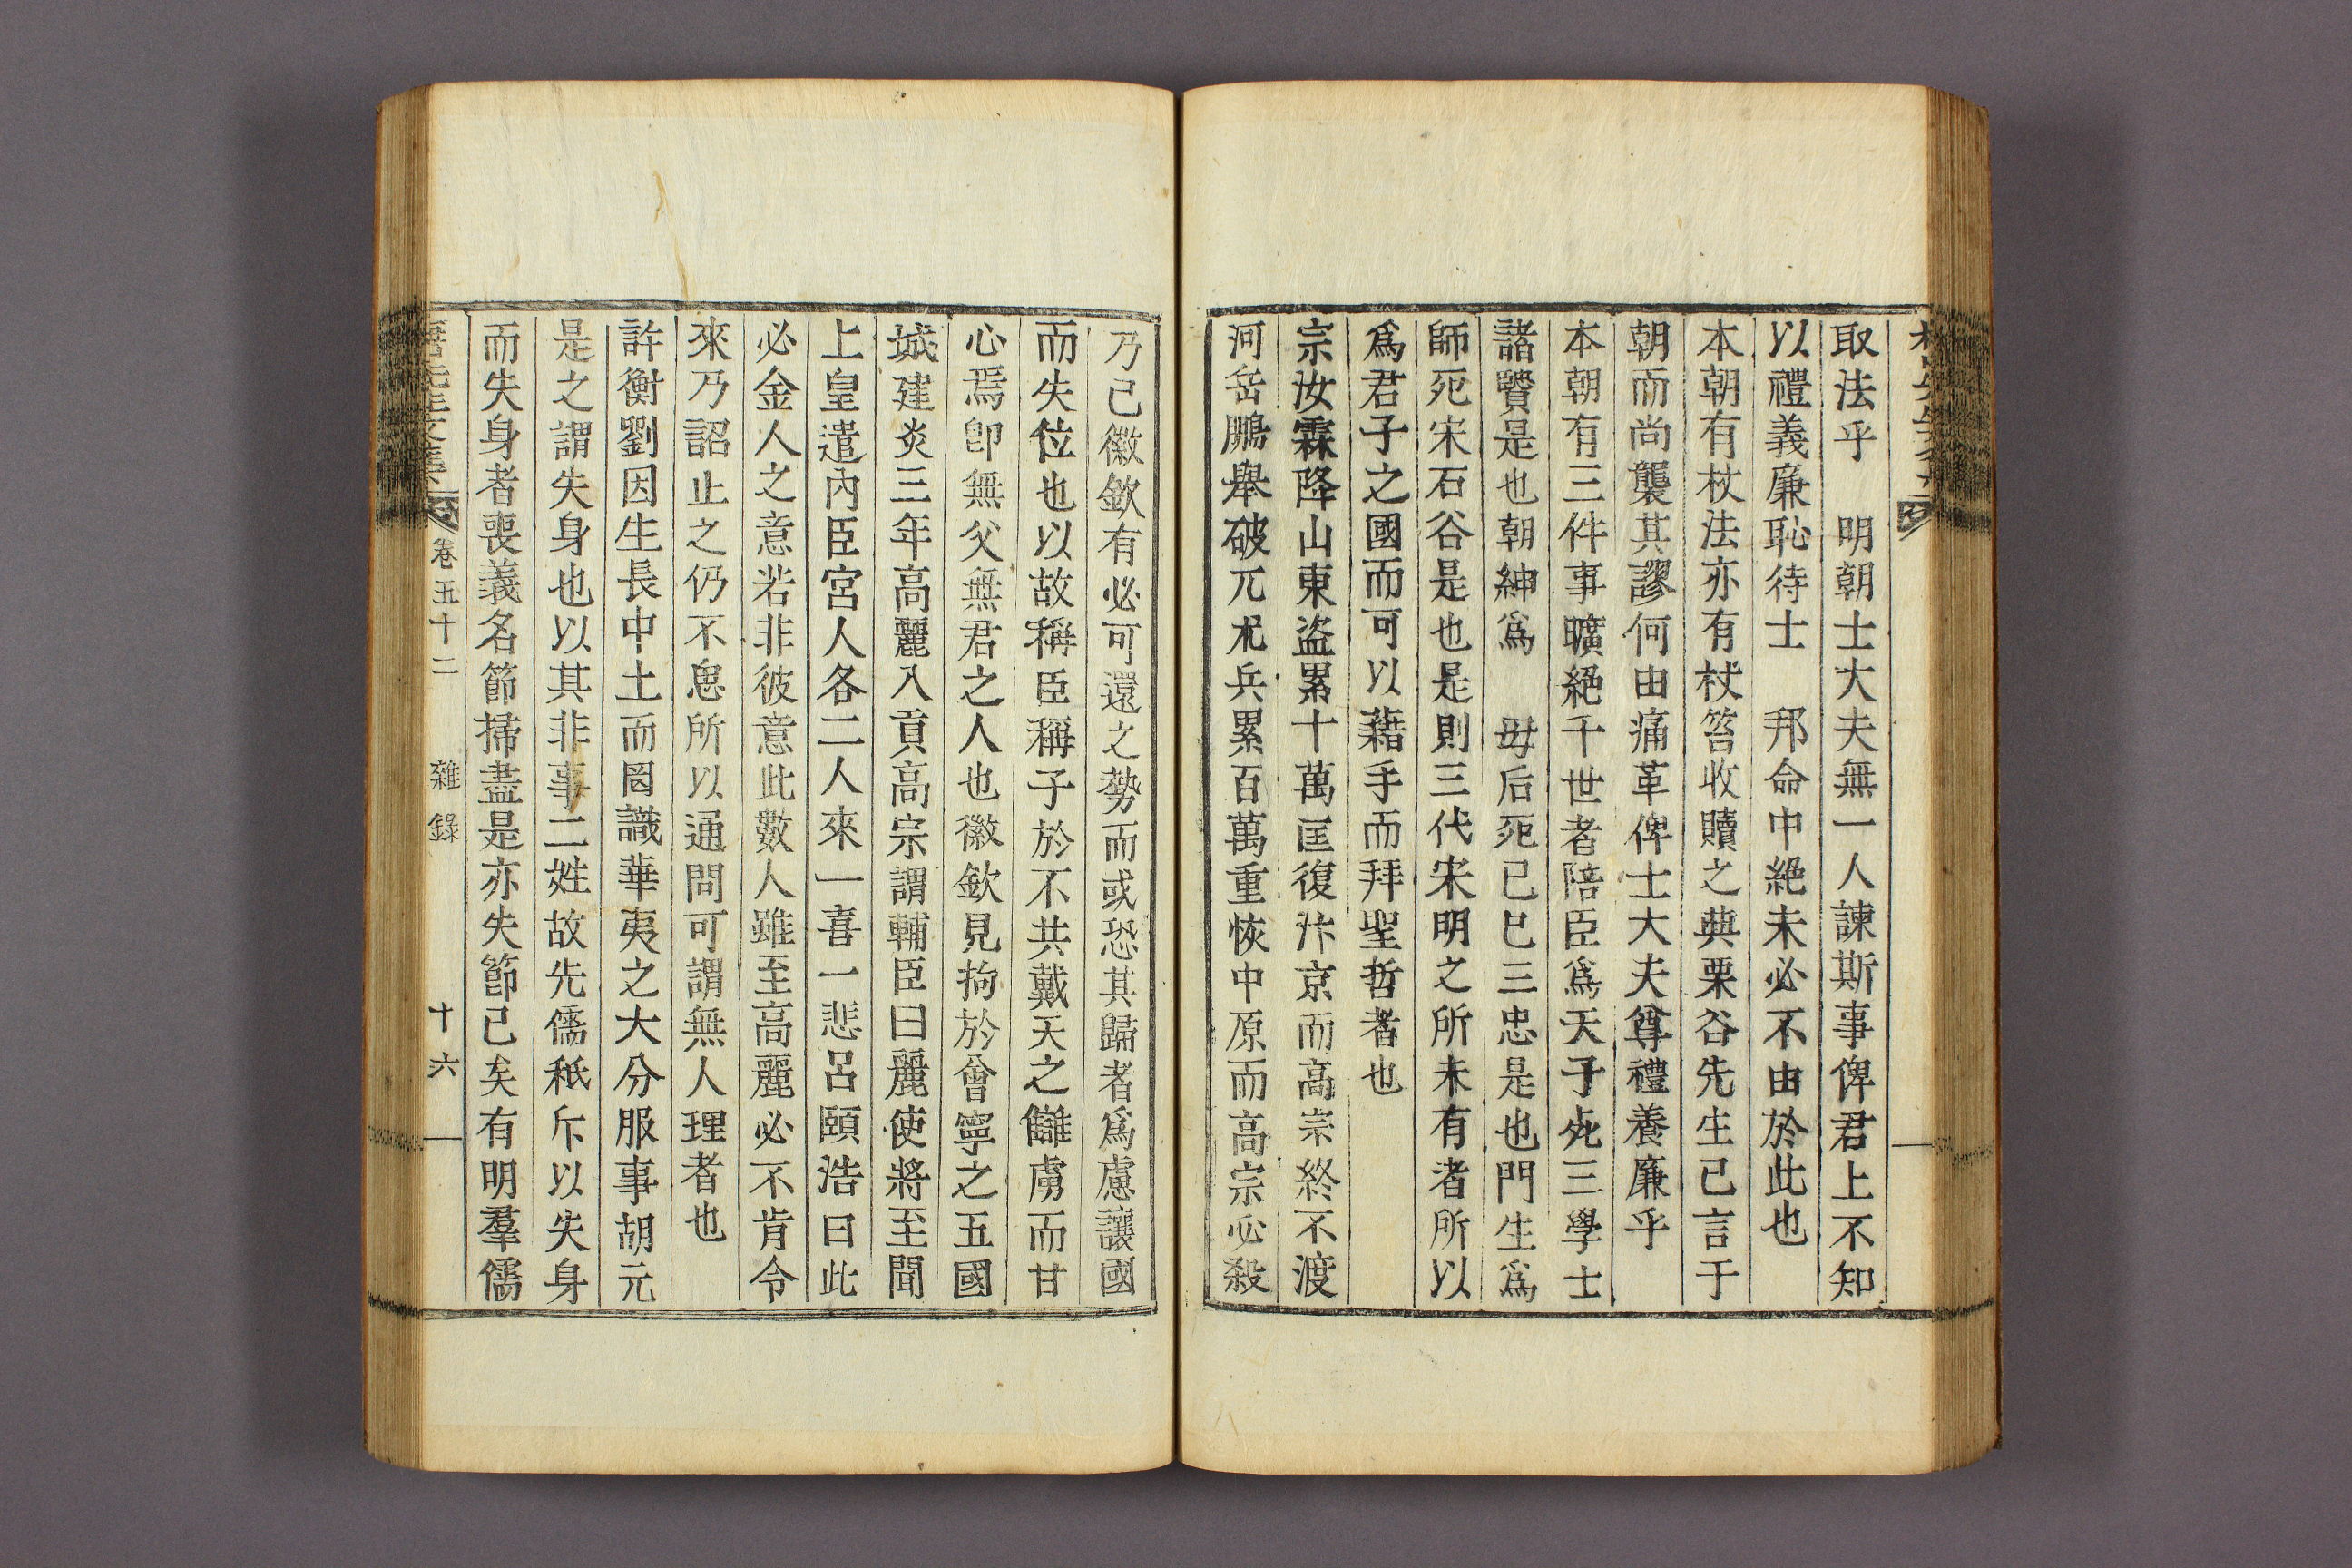 取法乎 明朝士大夫無一人諫斯事俾君上不知
以禮義廉恥待士 邦命中絶未必不由於此也
本朝有杖法亦有杖笞收贖之典栗谷先生已言于
朝而尚襲其謬何由痛革俾士大夫尊禮養廉乎
本朝有三件事曠絶千世者陪臣爲天子死三學士
諸贒是也朝紳爲 毋后死已巳三忠是也門生爲
師死宋石谷是也是則三代宋明之所未有者所以
爲君子之國而可以藉手而拜聖哲者也
宗汝霖降山東盗累十萬匡復汴京而高宗終不渡
河岳鵬舉破兀朮兵累百萬重恢中原而高宗必殺
乃己徽欽有必可還之勢而或恐其歸者爲慮讓國
而失位也以故稱臣稱子於不共戴天之讎虜而甘
心焉卽無父無君之人也徽欽見拘於會寧之五國
城建炎三年高麗入貢高宗謂輔臣曰麗使將至聞
上皇遣內臣宮人各二人來一喜一悲呂頤浩曰此
必金人之意若非彼意此數人雖至高麗必不肯令
來乃詔止之仍不思所以通問可謂無人理者也
許衡劉因生長中土而罔識華夷之大分服事胡元
是之謂失身也以其非事二姓故先儒秖斥以失身
而失身者喪義名節掃盡是亦失節已矣有明羣儒
卷五十二 雜錄 十六